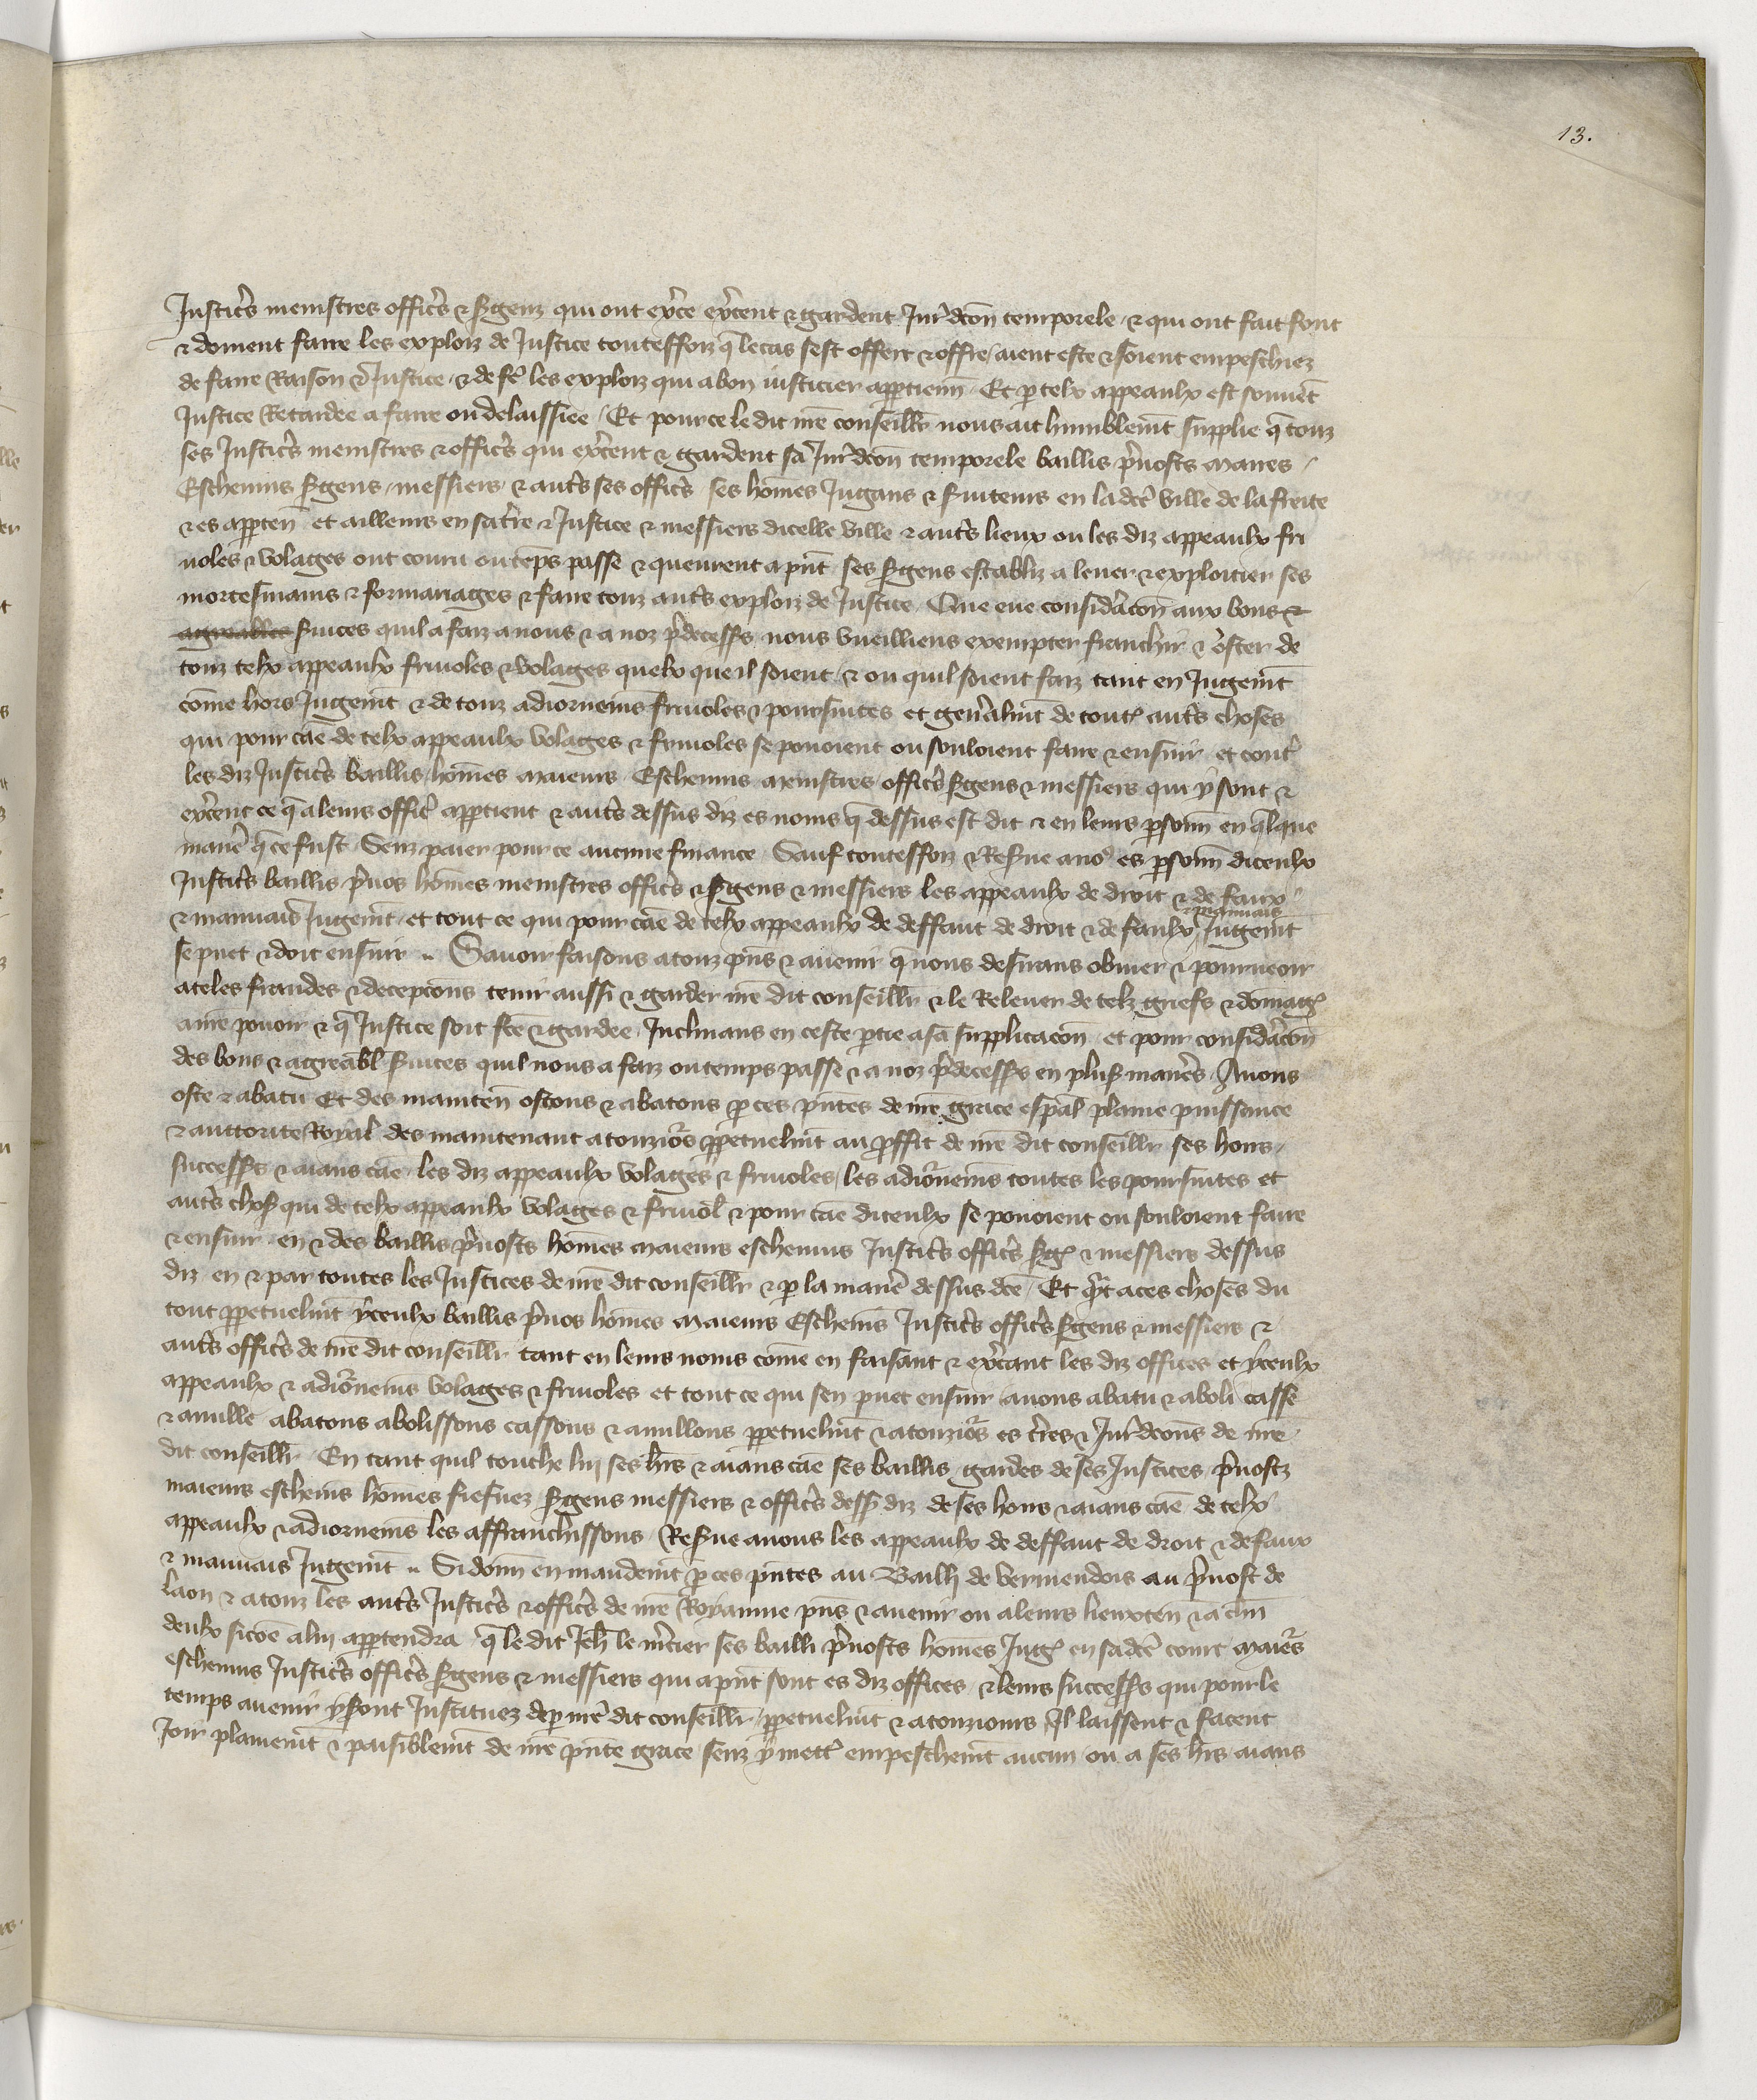 13.
Justic̃s menistres offic̃s & s̃genz qui ont ex̃ce ex̃cent & gardent Jur̃dicc̃on temporele / & qui ont fait font
& doiuent faire les exploiz de Justice toutesfoiz q̃ le cas sest offert & offre / aient este & soient empeschiez
de faire Raison & Justice / & de fẽ les exploiz qui a bon iusticier app̃tienñ / Et p̃ telx appeaulx est souuẽt
Justice Retardee a faire ou delaissiee / Et pource le dit nr̃e conseillr̃ nous ait humblemẽt supplie q̃ touz
ses Justic̃s menistres & offic̃s qui ex̃cent & gardent sa Jur̃dicc̃on temporele baillis p̃uosts maires /
Escheuins s̃gens / messiers / & autr̃s ses offic̃s ses hom̃es Jugans & s̃uiteurs en la dc̃e ville de la
& es app̃ten̄ et ailleurs en sa tr̃re & Justice & messiers dicelle ville & autr̃s lieux ou les diz appeaulx fri
uoles & volages ont couru ou temps passe & queurent a p̃nt ses s̃gens establiz a leuer & exploitier ses
mortesmains & formariages & faire touz autr̃s exploiz de Justice / Que eue considr̃acc̃on aux bons &
agreables s̃uices quil a faiz a nous & a noz p̃decesss̃ nous vueilliens exempter franchir & oster de
touz telx appeaulx friuoles & volages quelx que il soient / & ou quil soient faiz tant en Jugemẽt
com̃e hors Jugemẽt & de touz adiornemẽs friuoles & poursuites et gen̄alm̃t de toutes autr̃s choses
qui pour cãe de telx appeaulx volages & friuoles se pouoient ou souloient faire & ensuir et tout
les diz Justic̃s baillis hom̃es maieurs Escheuins menistres offic̃s s̃gens & messiers qui y sont &
ex̃cent ce q̃ a leurs offic̃ app̃tient & autr̃s dessus diz es noms q̃ dessus est dit & en leurs p̃sonñ en q̃lque
manẽr q̃ ce fust Senz paier pour ce aucune finance Sauf toutesfoiz & Res̃ue a noˢ es p̃sonñ diceulx
Justic̃s baillis p̃uos hom̃es menistres offic̃s & s̃gens & messiers les appeaulx de droit & de faux
& mauuais Jugemẽt et tout ce qui pour cãe de telx appeaulx de deffaut de droit & de faulx & mauuais Jugemẽt
se puet & doit ensuir .. Sauoir faisons a touz p̃ns & auenir q̃ nous desirans obuier & pourueoir
a teles fraudes & decepc̃ons tenir aussi & garder nr̃e dit conseillr̃ & le Releuer de telz griefs & dom̃ag̃
a nr̃e pouoir & q̃ Justice soit fc̃e & gardee / Inclinans en ceste p̃tie a sa supplicac̃on / et pour considr̃ac̃on
des bons & agreabl̃ s̃uices quil nous a faiz ou temps passe & a noz p̃decesss̃ en plus̃ manẽrs / Auons
oste & abatu Et des maintenñ ostons & abatons p̃ ces p̃ntes de nr̃e grace esp̃al plaine puissance
& auttorite Royal des maintenant a touziõrs p̃petuelm̃t au p̃ffit de nr̃e dit conseillr̃ ses hoirs /
successs̃ & aians cãe / les diz appeaulx volages & friuoles / les adiõrnemẽs toutes les poursuites et
autr̃s chos̃ qui de telx appeaulx volages & friuol̃ & pour cãe diceulx se pouoient ou souloient faire
& ensuir en & des baillis p̃uosts hom̃es maieurs escheuins Justic̃s offic̃s s̃g̃ & messiers dessus
diz en & par toutes les Justices de nr̃e dit conseillr̃ & p̃ la manẽr dessus dc̃e / Et q̃nt a ces choses du
tout p̃petuelm̃t yceulx baillis p̃uos hom̃es maieurs Escheuĩs Justic̃s offic̃s s̃gens & messiers &
autr̃s offic̃s de nr̃e dit conseillr̃ tant en leurs noms com̃e en faisant & ex̃cant les diz offices et yceulx
appeaulx & adiõrnemẽs volages & friuoles et tout ce qui sen puet ensuir / auons abatu & aboli casse
& anulle abatons abolissons cassons & anullons p̃petuelm̃t & a touziõrs es tr̃res & Jur̃dicc̃ons de nr̃e
dit conseillr̃ / En tant quil touche luj ses hr̃s & aians cãe ses baillis / gardes de ses Justices / p̃uostz
maieurs escheuĩs hom̃es fiefuez s̃gens messiers & offic̃s dess̃ diz de ses hoirs & aians cãe de telx
appeaulx & adiornemẽs les affranchissons / Res̃ue a nous les appeaulx de deffaut de droit & de faux
& mauuais Jugemẽt .. Si donñ en mandemẽt p̃ ces p̃ntes au Bailli de vermendois au p̃uost de
laon & a touz les autr̃s Justic̃s & offic̃s de nr̃e Royaume p̃ns & auenir ou a leurs lieuxten̄ & a c̃hũ
deulx sicõe a lui app̃tendra q̃ le dit Jeh̃ le m̃cier ses bailli p̃uosts hom̃es Jug̃ en sa dc̃e court maiẽrs
escheuins Justic̃s offic̃s s̃gens & messiers qui a p̃nt sont es diz offices & leurs successs̃ qui pour le
temps auenir y s̃ont Instituez dep̃ nr̃e dit conseillr̃ / p̃petuelm̃t & a touziours / Il laissent & facent
Joir plainemẽt & paisiblemẽt de nr̃e p̃nte grace senz y mett̃ empeschemẽt aucun / ou a ses hr̃s aians